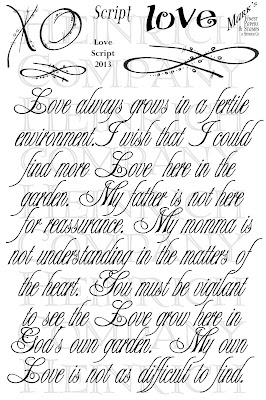 XO
Script
love
Mark's
FINEST
PAPERS
& STAMPS
Love
Script
2013
Love always grows in a fertile
environment. I wish that I could
find more Love here in the
garden. My father is not here
for reassurance. My momma is
not understanding in the matters of
the heart. You must be vigilant
to see the Love grow here in
God's own garden. My own
Love is not as difficult to find.